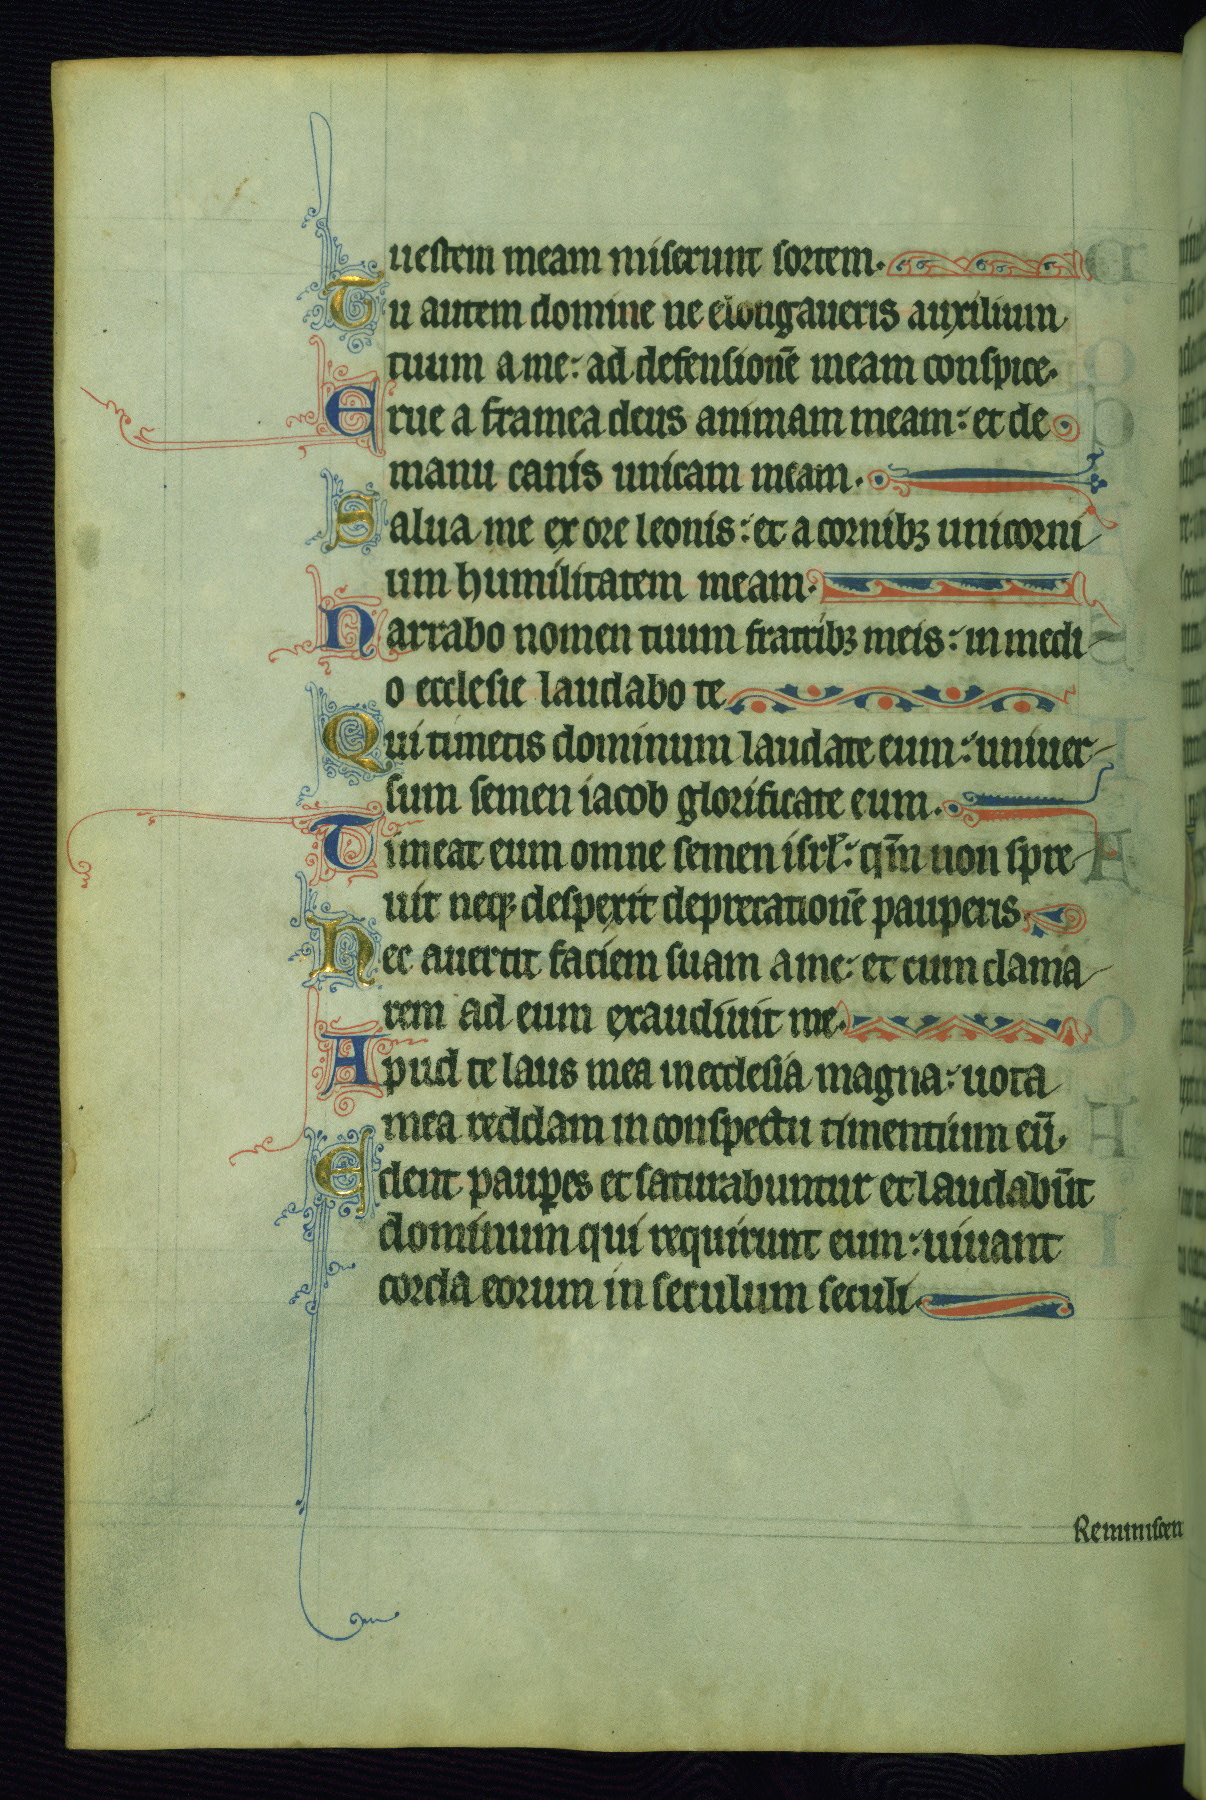 uestem meam miserunt sortem.
Tu autem domine ne elongaueris auxilium
tuum a me: ad defensionē meam conspice.
Erue a framea deus animam meam: et de
manu canis unicam meam.
Salua me ex ore leonis: et a cornibꝫ unicorni
um humilitatem meam.
Narrabo nomen tuum fratribꝫ meis: in medi
o ecclesie laudabo te
Qui timetis dominum laudate eum: uniuer
sum semen iacob glorificate eum.
Timeat eum omne semen isrl̄: qm̄ non spre
uit neqꝫ despexit deprecationē pauperis
Nec auertit faciem suam a me: et cum clama
rem ad eum exaudiuit me.
Apud te laus mea in ecclesia magna: uota
mea reddam in conspectu timentium eū.
Edent pauꝑes et saturabuntur et laudabūt
dominum qui requirunt eum: uiuant
corda eorum in seculum seculi.
Reminiscen